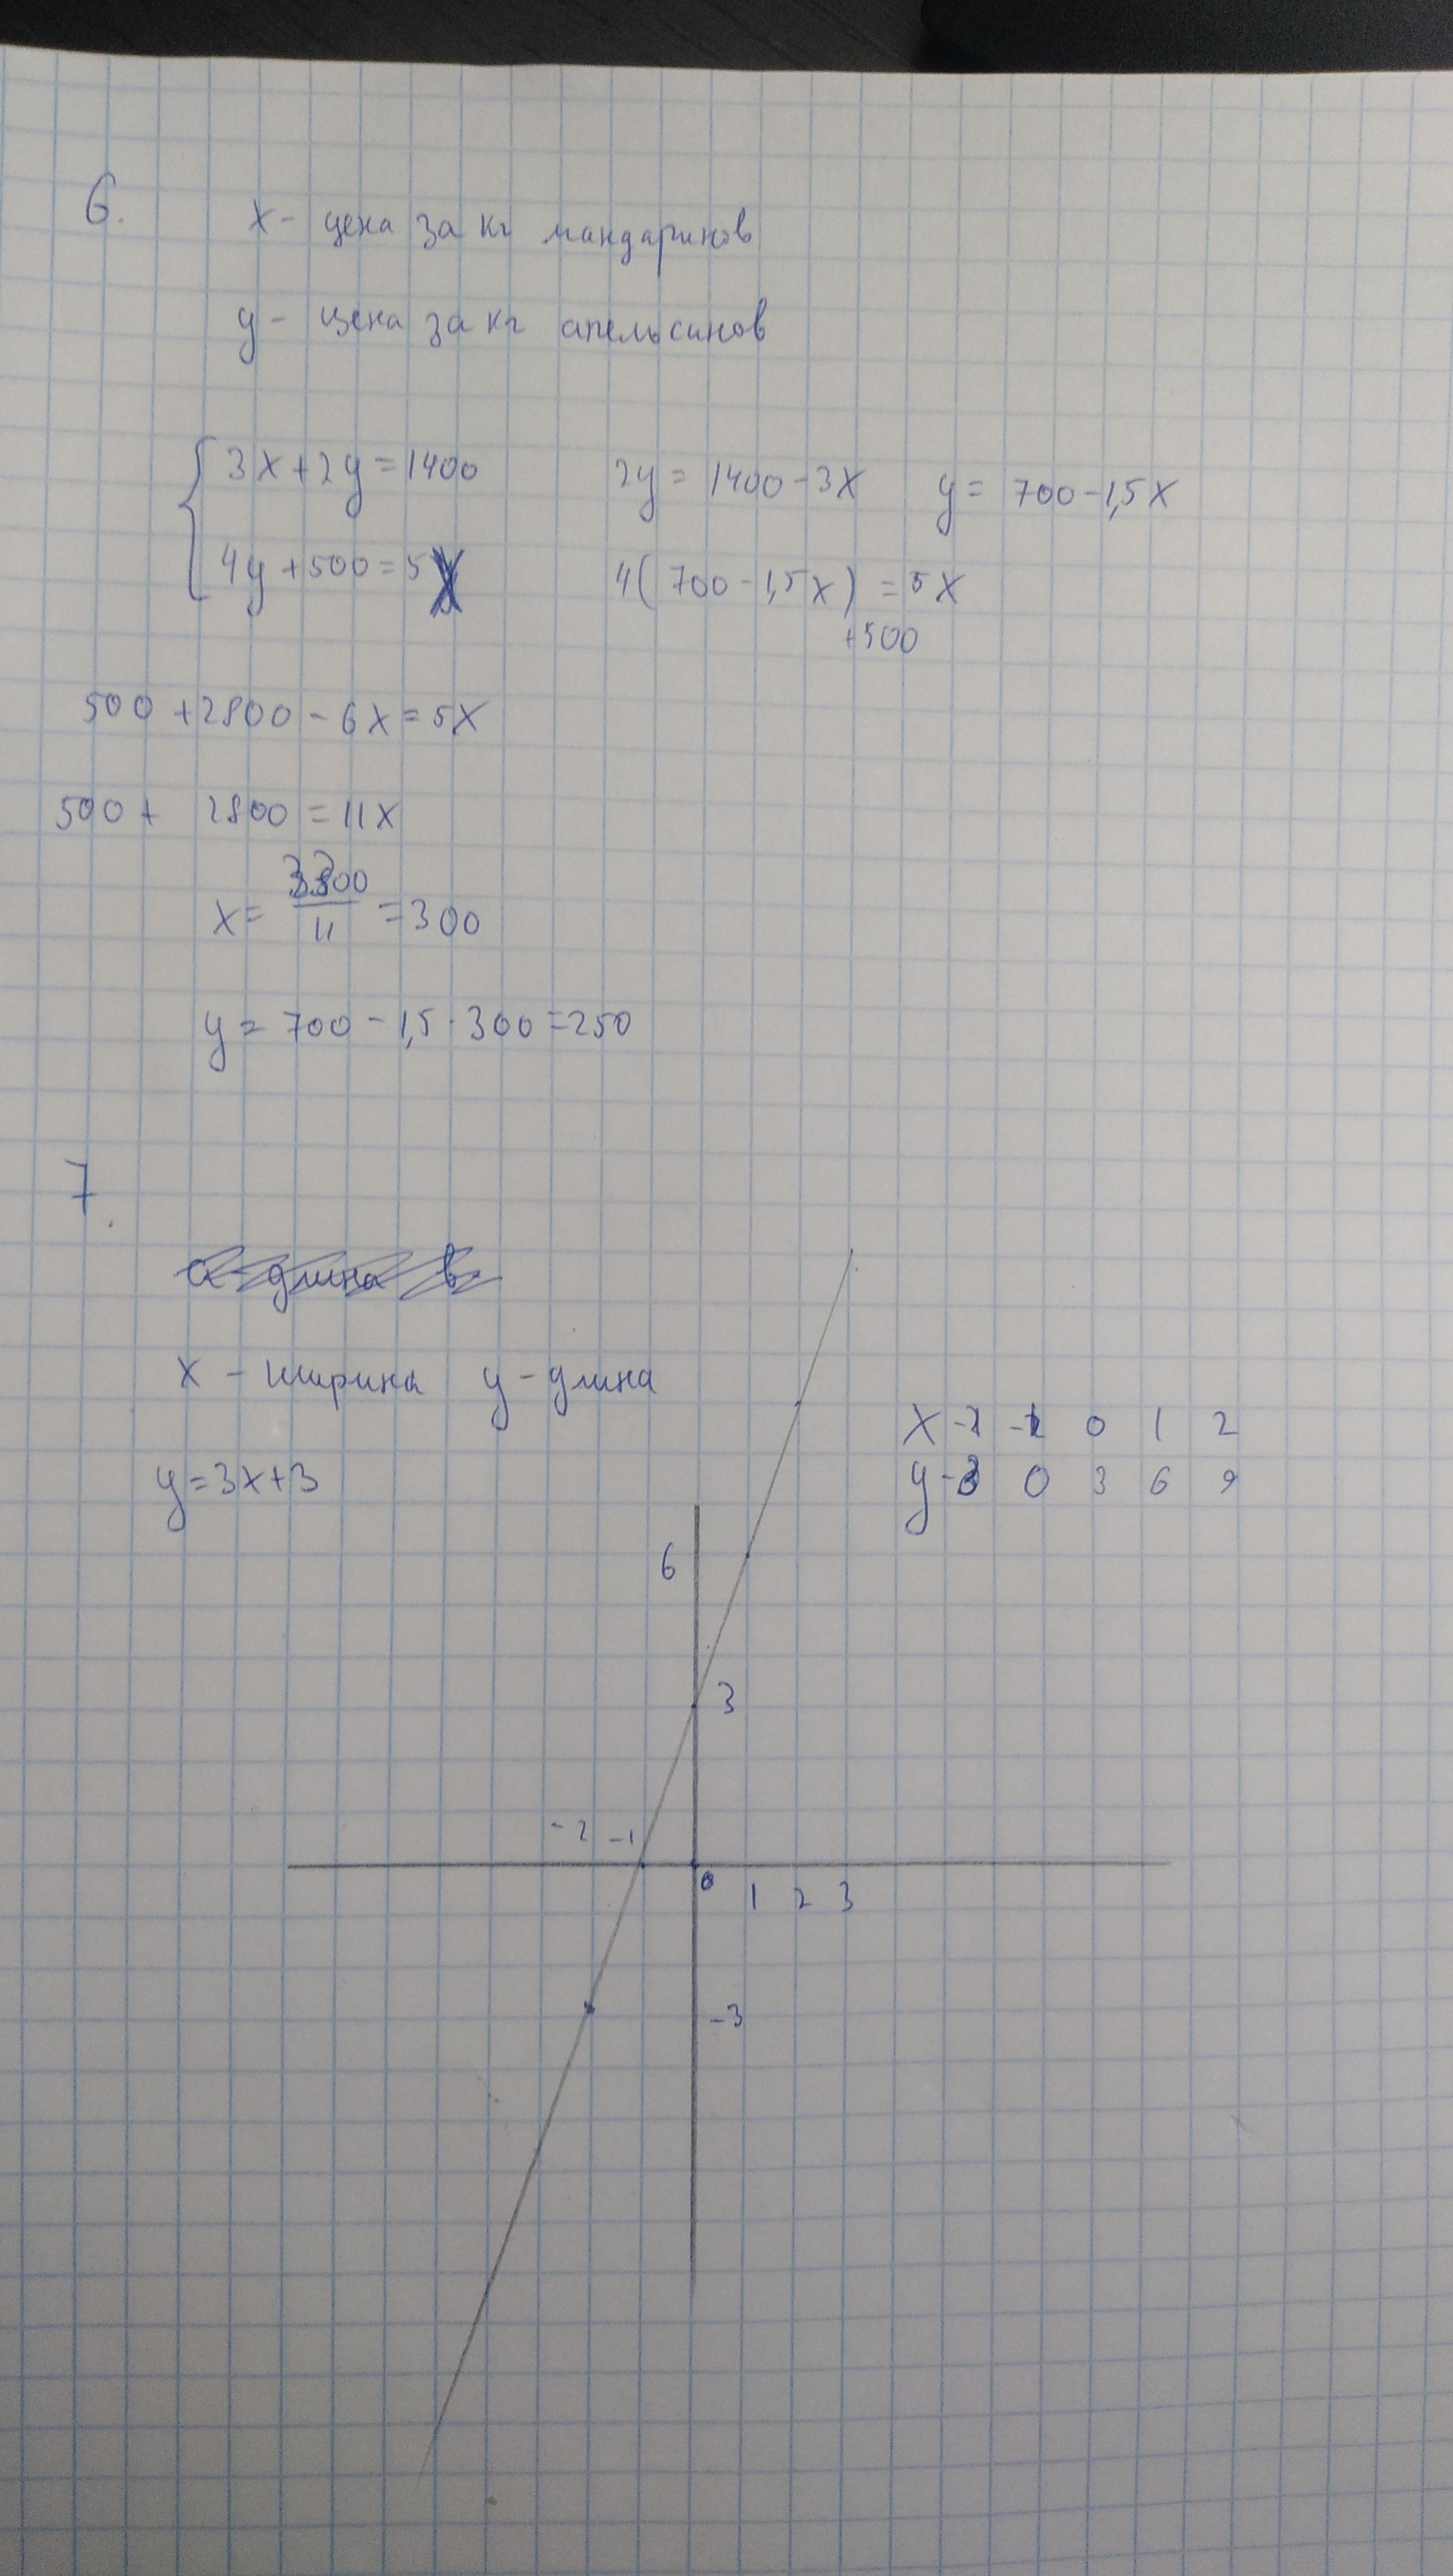 6.
x - цена за кг мандаринов
y - цена за кг апельсинов
3x+2y=1400 2y = 1400-3x y = 700-1,5x
4y+500=5x 4(700-1,5x) = 5x
+500
500+2800-6x=5x
500+ 2800=11x
x= 3300/11 =300
y= 700-1,5·300=250
7.
а-длина в-
x - ширина y-длина
x -2 -1 0 1 2
y=3x+3
y -3 0 3 6 9
6
3
-2 -1
0 1 2 3
-3